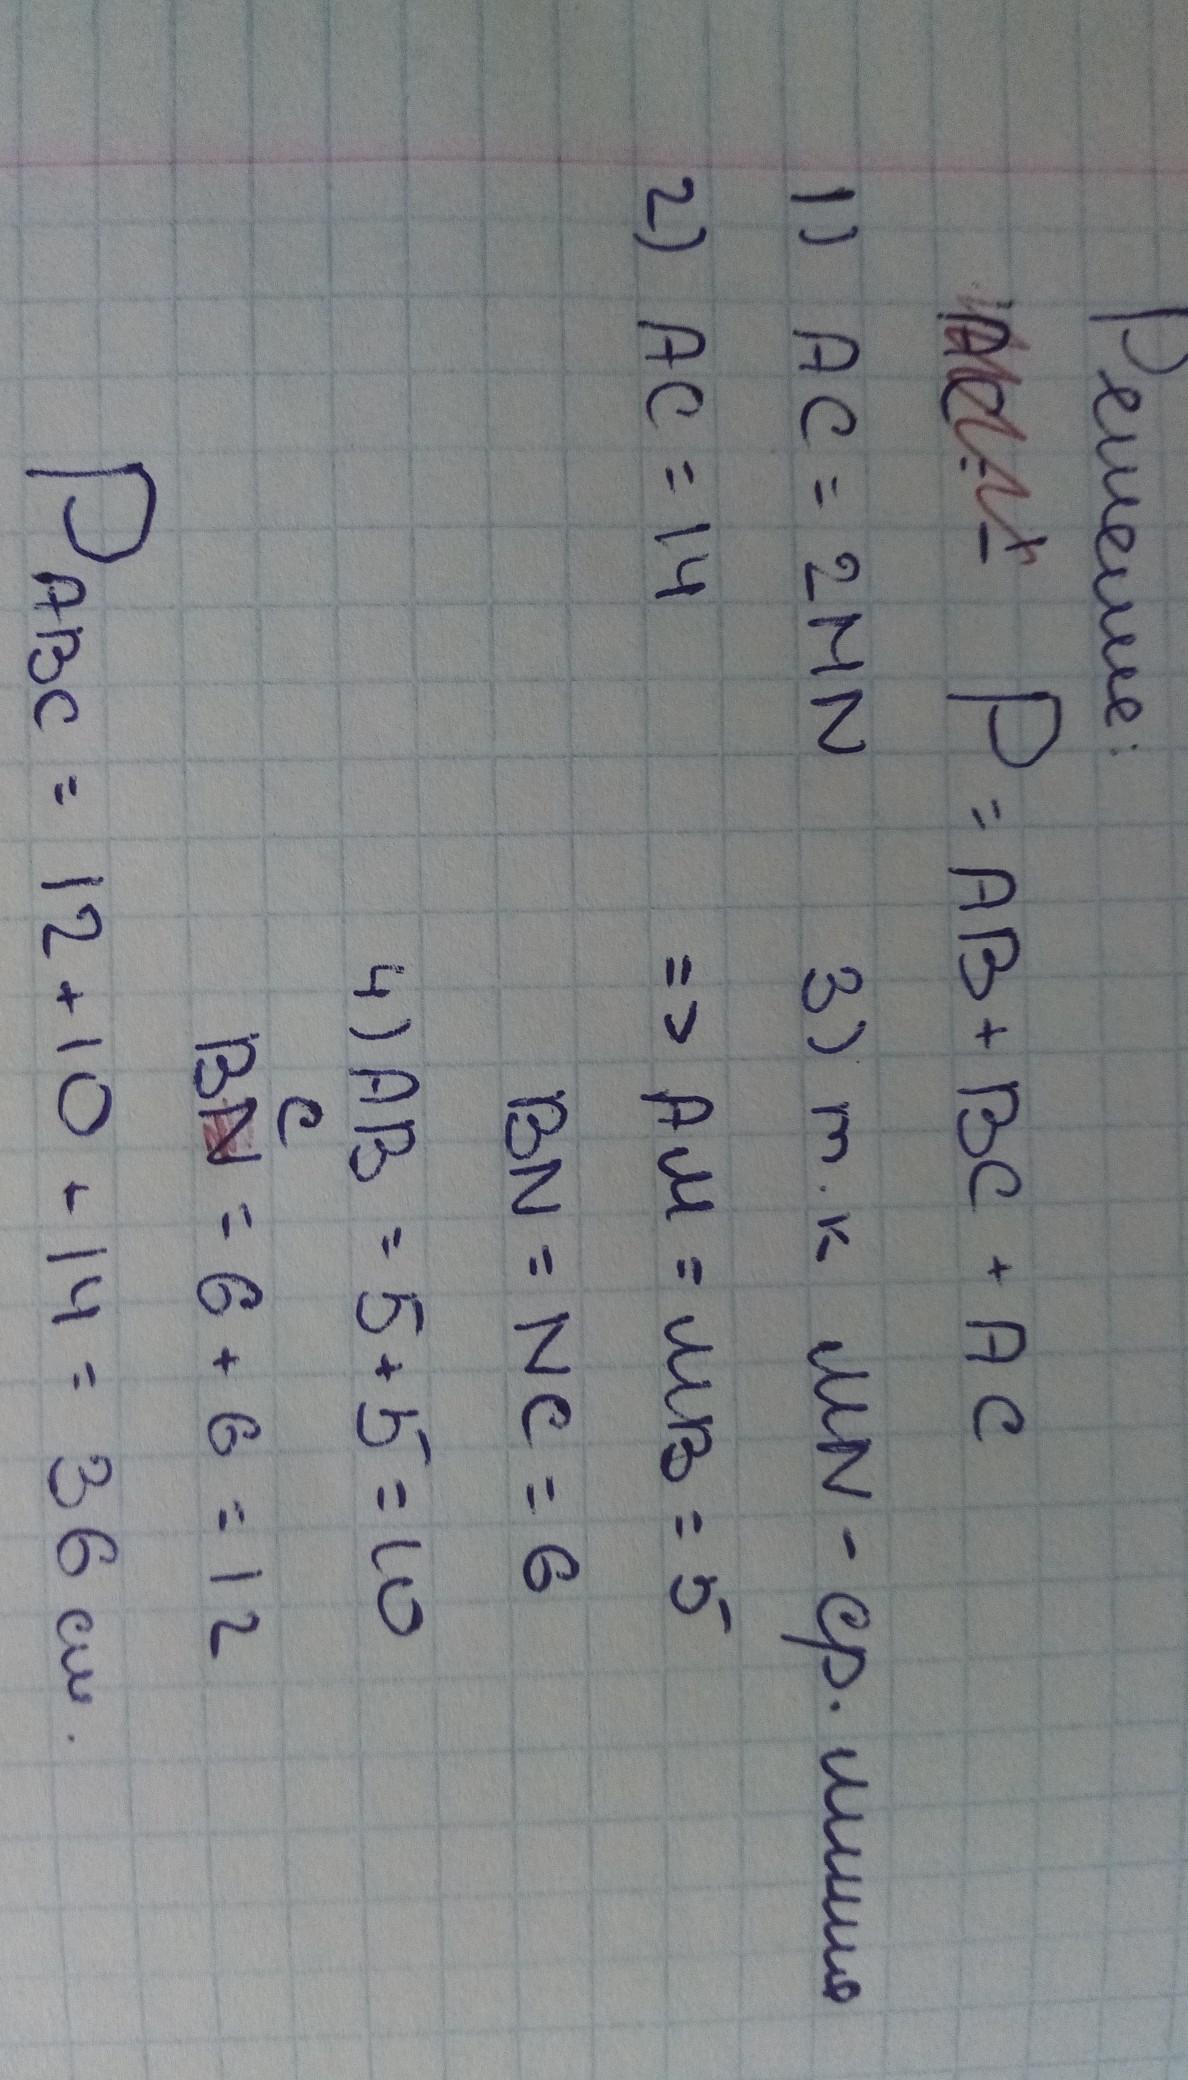 Решение:
P = AB + BC + AC
1) AC = 2MN
2) AC = 14
3) т.к MN - ср. линия
=> AM = MB = 5
BN = NC = 6
4) AB = 5 + 5 = 10
BC = 6 + 6 = 12
PABC = 12 + 10 + 14 = 36 см.